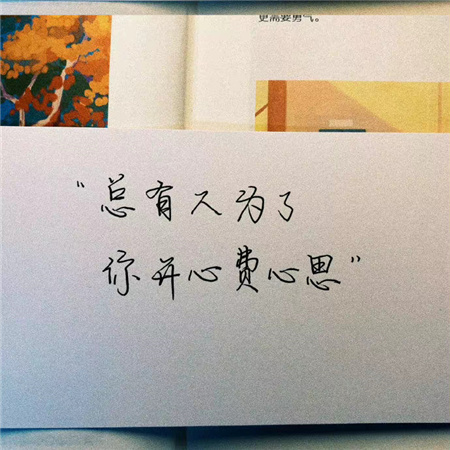 更需要勇气。
“总有人为了
你并心费心思”